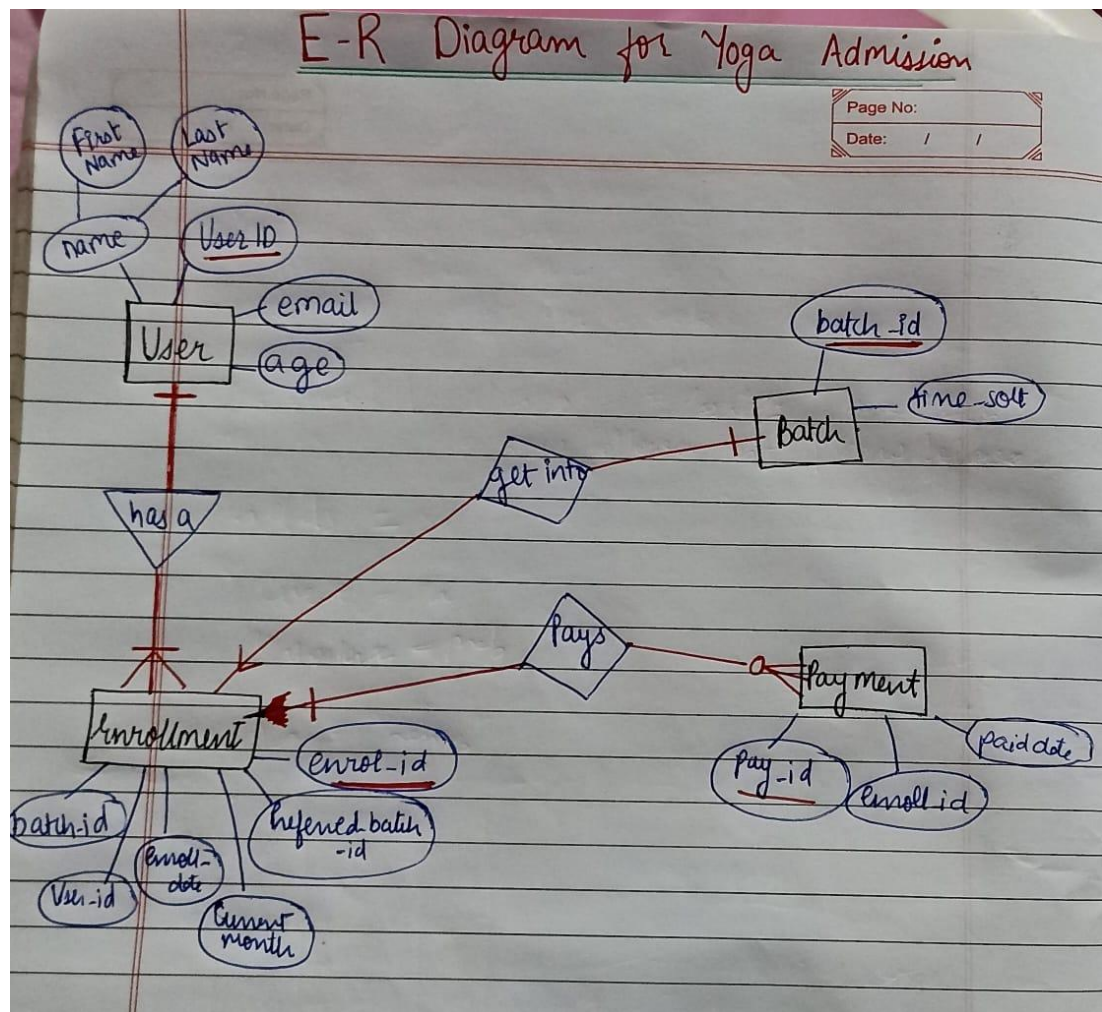 E-R Diagram for Yoga Admission
Page No:
Date: / /
First
Name
Last
Name
name
User ID
email
User
age
batch_id
time_solt
Batch
get into
has a
Pays
Payment
Enrollment
paid date
enrol-id
Pay_id
enroll id
batch-id
preferred batch
-id
enroll-
date
User-id
Current
month